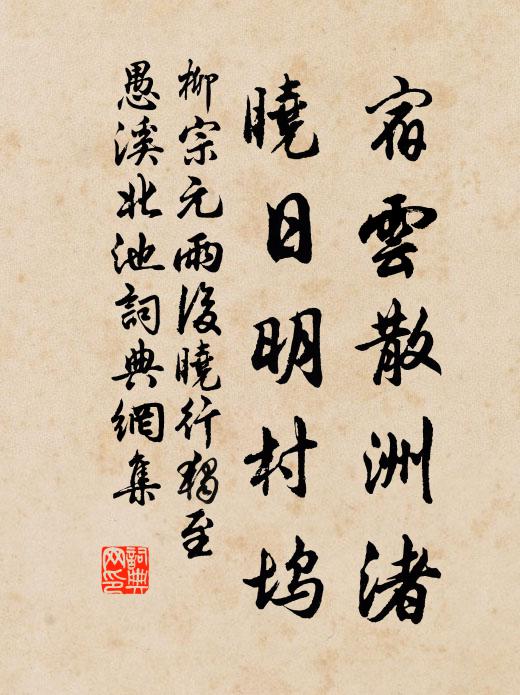 宿雲散洲渚
曉日明村塢
柳宗元雨後曉行獨至
愚溪北池詞典網集
詞典
网印